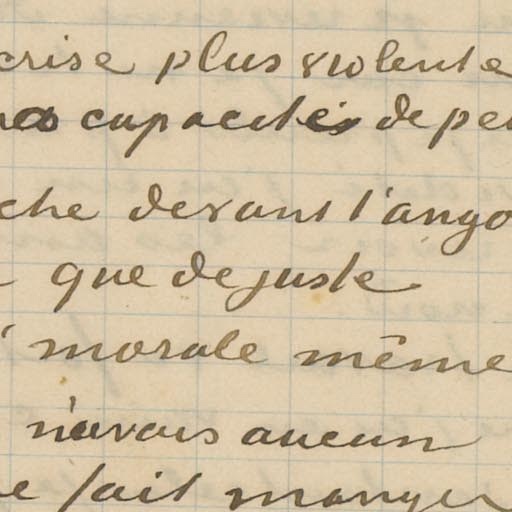 crise plus violente
capacités de pe
che devant l'ango
que de juste
morale même
n'avais aucun
e fait manger